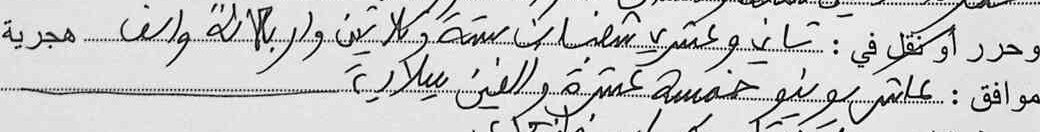 وحرر أو نقل في : ثاني وعشرين شعبان ستة وثلاثين واربعمائة والف هجرية
موافق : عاشر يونيو خمسة عشرة والفين ميلادية